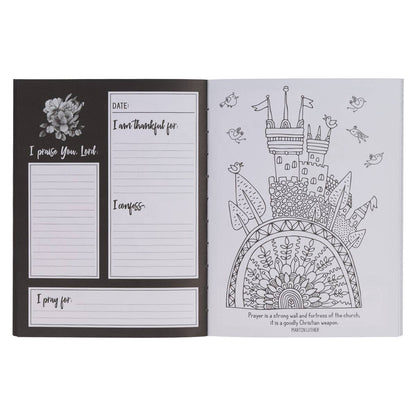 I praise You, Lord,
DATE:
I am thankful for:
I confess:
I pray for:
Prayer is a strong wall and fortress of the church;
it is a goodly Christian weapon.
MARTIN LUTHER